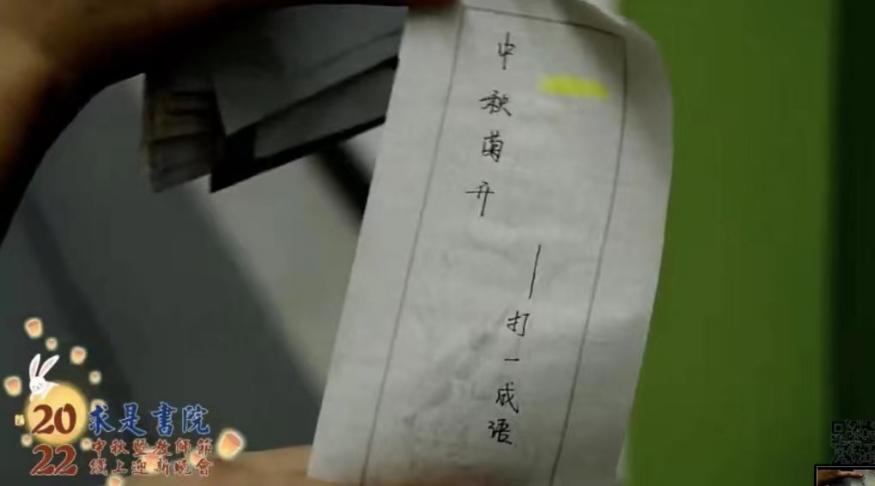 中秋菊开
——打一成语
2022
求是书院
中秋暨教师节
线上迎新晚會